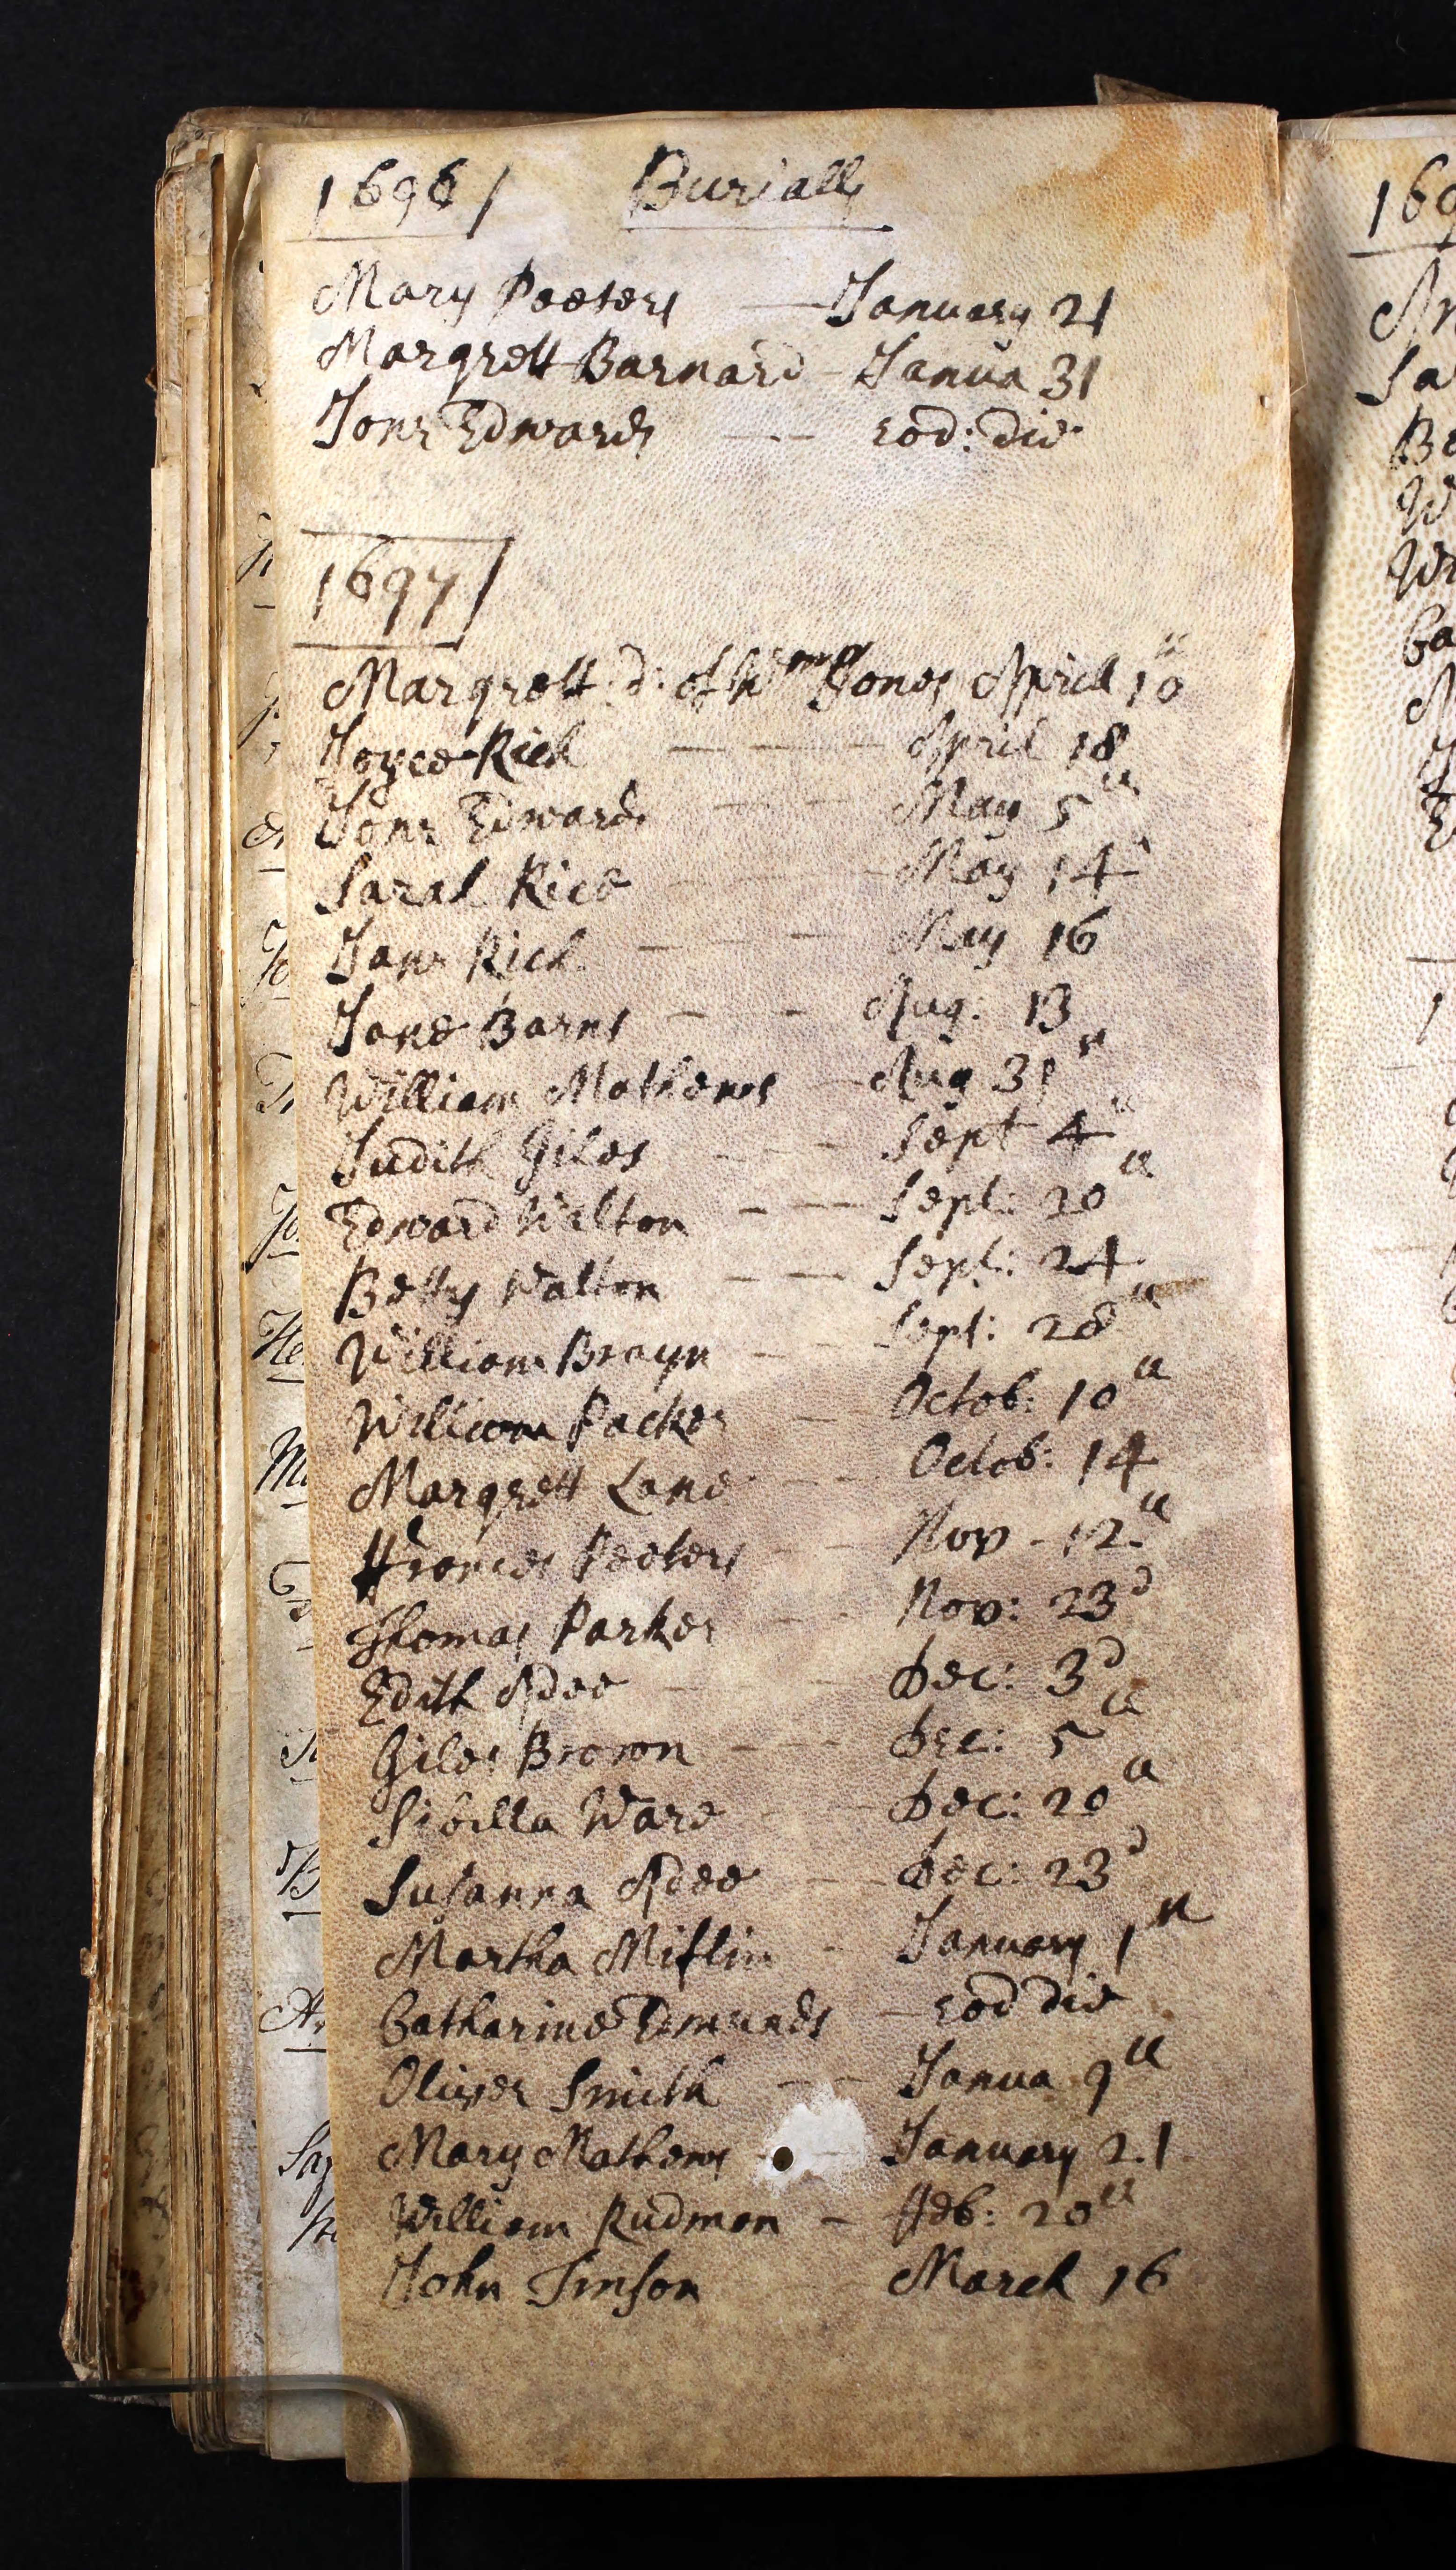 1696 / Burialls
Mary Peeters — January 21
Margrett Barnard - Janua 31
Jone Edwards — — eod: die
1697 /
Margrett: d: of Wm Jones Aprill 10th
Joyce Rich — — — April 18
Jone Edwards — — May 5th
Sarah Rice — — — May 14
Jane Rich — — — May 16
Jane Barns — - Aug: 13
William Mathews — Aug 31st
Judith Giles — - - Sept 4th
Edward Walton - - — Sept: 20th
Betty Walton — — — Sept: 24
William Brayn — — Sept: 28th
William Packer — Octob: 10th
Margrett Lane — — Octob: 14
ffrances Peeters — — Nov - 12th
Thomas Parker — — Nov: 23d
Edith Adee — — Dec: 3d
Giles Brown — — — Dec: 5th
Sibilla Ward — Dec: 20th
Susanna Adee — — Dec: 23d
Martha Miflin - January 1st
Catharine Edmunds — eod die
Oliver Smith — — Janua 9th
Mary Mathews — January 21
William Rudman — ffeb: 20th
John Timson March 16
169